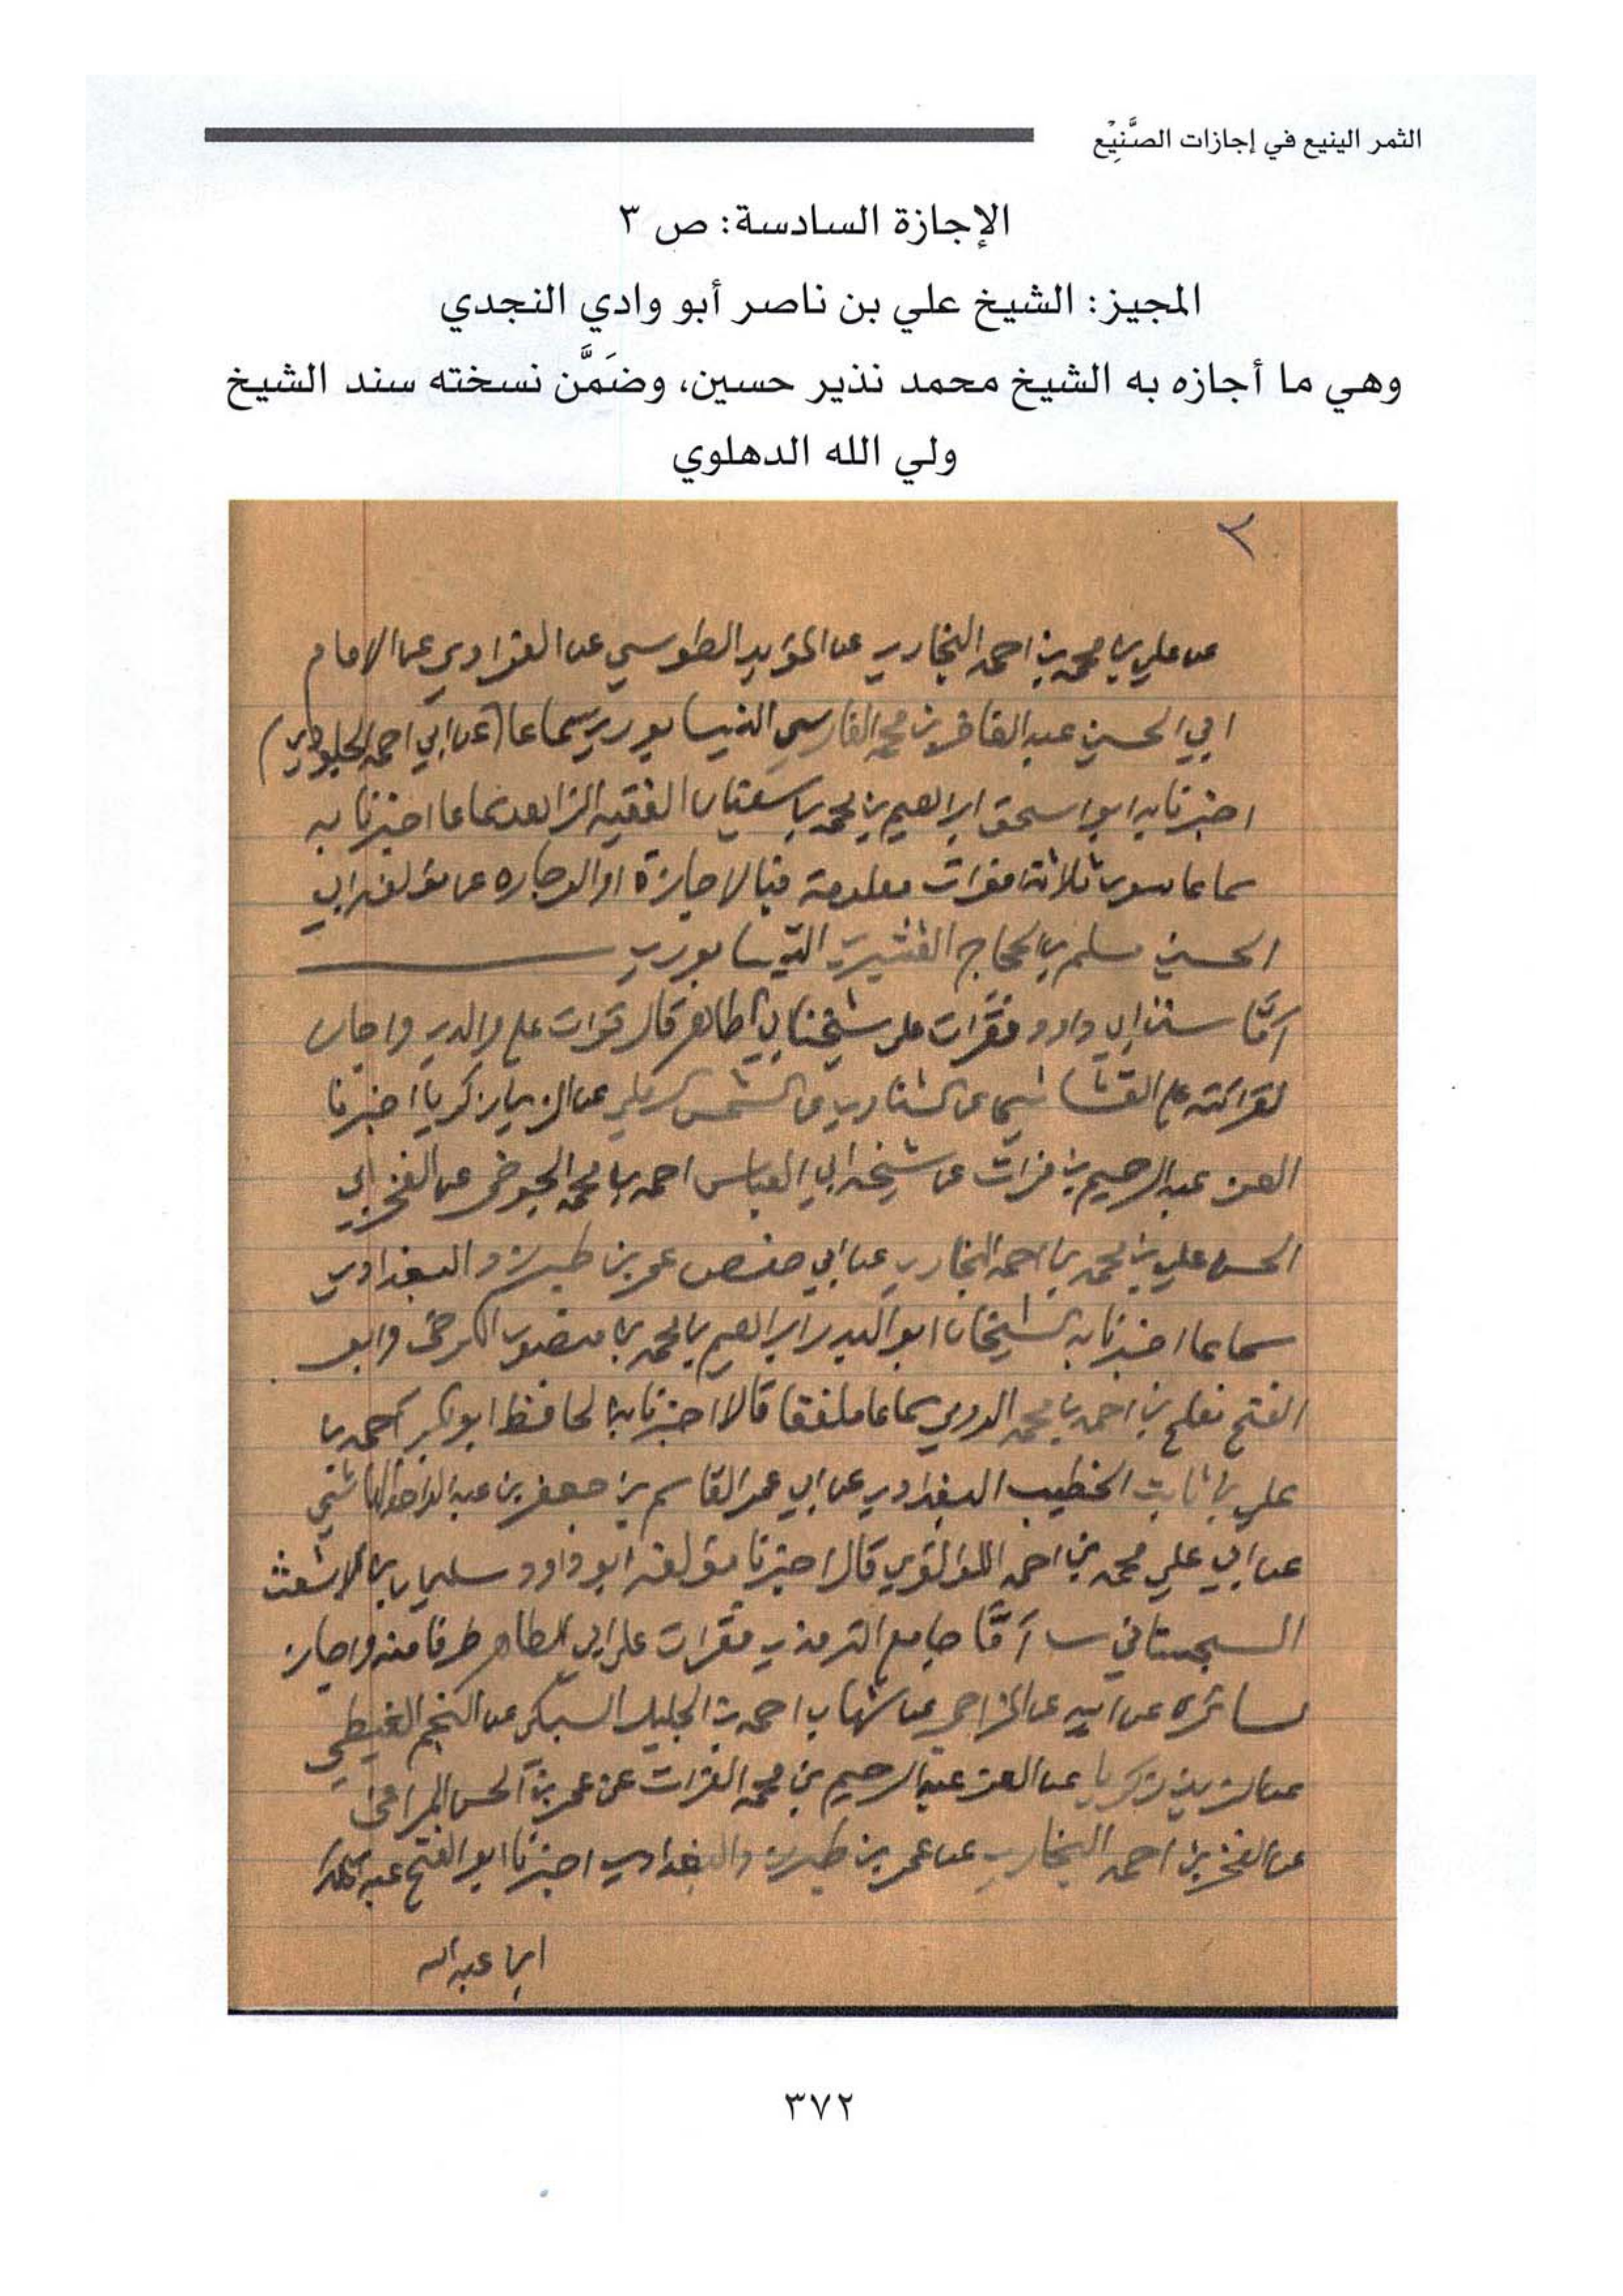 الثمر الينيع في إجازات الصَّنِيْع
الإجازة السادسة: ص ٣
المجيز: الشيخ علي بن ناصر أبو وادي النجدي
وهي ما أجازه به الشيخ محمد نذير حسين، وضَمَّن نسخته سند الشيخ
ولي الله الدهلوي
٣
عن علي بن محمد بن احمد البخاري عن المؤيد الطوسي عن الفراوي عن الامام
ابي الحسين عبد الغافر بن محمد الفارسي النيسابوري سماعا (عن ابي احمد الجلودي)
اخبرنا به ابو اسحق ابراهيم بن محمد بن سفيان الفقيه الزاهد سماعا اخبرنا به
سماعا سوى ثلاثة افوات معلومة فبالاجازة او الوجاده عن مؤلفه ابي
الحسين مسلم بن الحجاج القشيري النيسابوري
امَّا سنن ابي داود فقرات على شيخنا ابي الطاهر قال قرات على والدي واجاز
لقرائته على القشاشي عن الشناوي عن الشمس الرملي عن الزين زكريا اخبرنا
العز عبد الرحيم بن فرات عن شيخه ابي العباس احمد بن محمد الجوخي عن الفخر ابي
الحسن علي بن محمد بن احمد البخاري عن ابي حفص عمر بن طبرزد البغدادي
سماعا اخبرنا به الشيخان ابو البدر ابراهيم بن محمد بن منصور الكرخي وابو
الفتح مفلح بن احمد بن محمد الدومي سماعا ملفقا قالا اخبرنا به الحافظ ابو بكر احمد بن
علي بن ثابت الخطيب البغدادي عن ابي عمر القاسم بن جعفر بن عبد الواحد الهاشمي
عن ابي علي محمد بن احمد اللؤلؤي قال اخبرنا مؤلفه ابو داود سليمان بن الاشعث
السجستاني امَّا جامع الترمذي فقرات على ابي الطاهر طرفا منه واجاز
لسائره عن ابيه عن المزاحي عن شهاب احمد بن الخليل السبكي عن النجم الغيطي
عن الزين زكريا عن العز عبد الرحيم بن محمد الفرات عن عمر بن الحسن المراغي
عن الفخر بن احمد البخاري عن عمر بن طبرزد البغدادي اخبرنا ابو الفتح عبد الملك
ابن عبد الله
٣٧٢